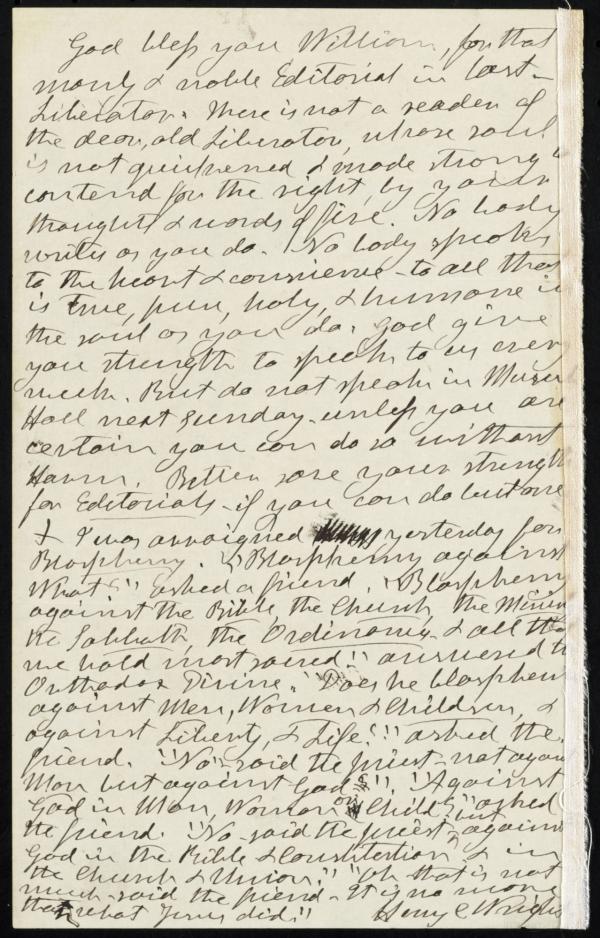 God bless you William, for that
manly & noble Editorial in last
Liberator. There is not a reader of
the dear, old Liberator, whose soul
is not quickened & made strong to
contend for the right, by your
thoughts & words of fire. No body
writes as you do. No body speaks
to the heart & conscience - to all that
is true, pure, holy, & humane in
the soul as you do. God give
you strength to speak to us every
week. But do not speak in Music
Hall next Sunday - unless you are
certain you can do so without
Harm. Better save your strength
for Editorials - if you can do but one
I was arraigned yesterday for
Blasphemy. "Blasphemy against
What?" asked a friend. "Blasphemy
against the Bible, the Church, the
the Sabbath, the Ordinances & all that
we hold most sacred!" answered the
Orthodox Divine. "Does he blaspheme
against Men, Women & Children, &
against Liberty, & Life?" asked the
friend. "No" - said the priest - not against
Man but against God!" "Against
God in Man, Woman or Child?" asked
the friend. "No - said the priest - but against
God in the Bible & Constitution & in
the Church & Union!" "Oh that is not
much - said the friend - It is no more
than what Jesus did!"
Henry C Wright